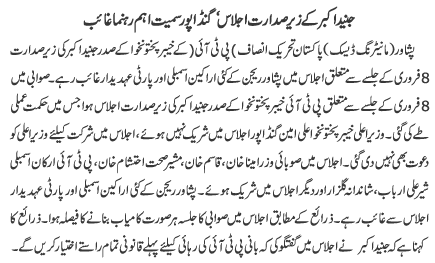 جنید اکبر کے زیر صدارت اجلاس‘ گنڈا پور سمیت اہم رہنما غائب
پشاور (مانیٹرنگ ڈیسک) پاکستان تحریک انصاف (پی ٹی آئی) کے خیبر پختونخوا کے صدر جنید اکبر کی زیر صدارت
8 فروری کے جلسے سے متعلق اجلاس میں پشاور ریجن کے کئی اراکین اسمبلی اور پارٹی عہدیدار غائب رہے۔ صوابی میں
8 فروری کے جلسے سے متعلق پی ٹی آئی خیبر پختونخوا کے صدر جنید اکبر کی زیر صدارت اجلاس ہوا جس میں حکمت عملی
طے کی گئی۔ وزیر اعلیٰ خیبر پختونخوا علی امین گنڈا پور اجلاس میں شریک نہیں ہوئے، اجلاس میں شرکت کیلئے وزیر اعلیٰ کو
دعوت بھی نہیں دی گئی۔ اجلاس میں صوبائی وزرا مینا خان، قاسم خان، مشیر صحت احتشام خان، پی ٹی آئی ارکان اسمبلی
شیر علی ارباب، شاندانہ گلزار اور دیگر اجلاس میں شریک ہوئے۔ پشاور ریجن کے کئی اراکین اسمبلی اور پارٹی عہدیدار
اجلاس سے غائب رہے۔ ذرائع کے مطابق اجلاس میں صوابی کا جلسہ ہر صورت کامیاب بنانے کا فیصلہ ہوا۔ ذرائع کا
کہنا ہے کہ جنید اکبر نے اجلاس میں گفتگو کی کہ بانی پی ٹی آئی کی رہائی کیلئے پہلے قانونی تمام راستے اختیار کریں گے۔